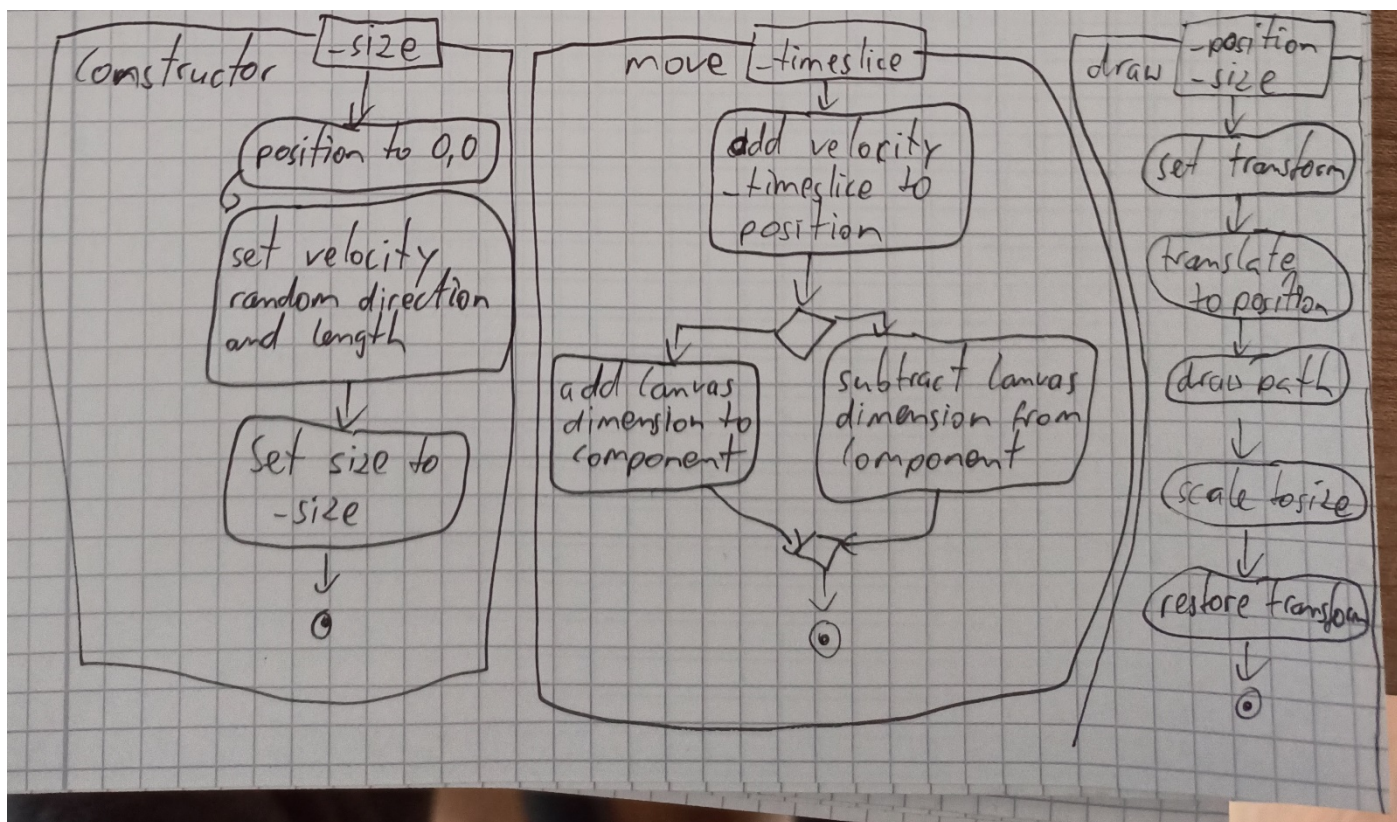 Constructor
-size
position to 0,0
set velocity
random direction
and length
Set size to
-size
move
-timeslice
add velocity
-timeslice to
position
add Canvas
dimension to
component
subtract Canvas
dimension from
component
draw
-position
-size
set transform
translate
to position
draw path
scale to size
restore transform